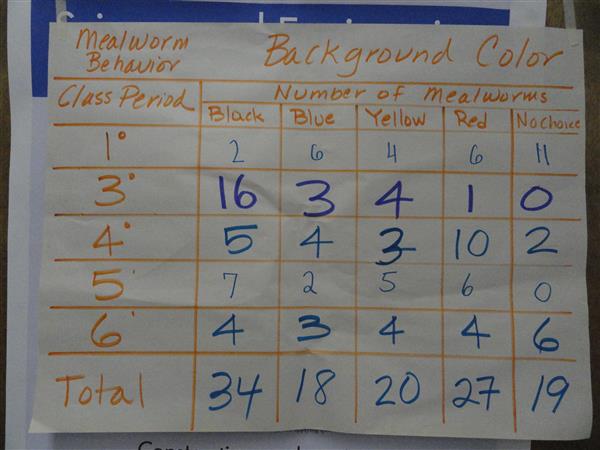 Mealworm Behavior Background Color
Class Period Number of Mealworms
Black Blue Yellow Red No Choice
1° 2 6 4 6 11
3° 16 3 4 1 0
4° 5 4 3 10 2
5° 7 2 5 6 0
6° 4 3 4 4 6
Total 34 18 20 27 19